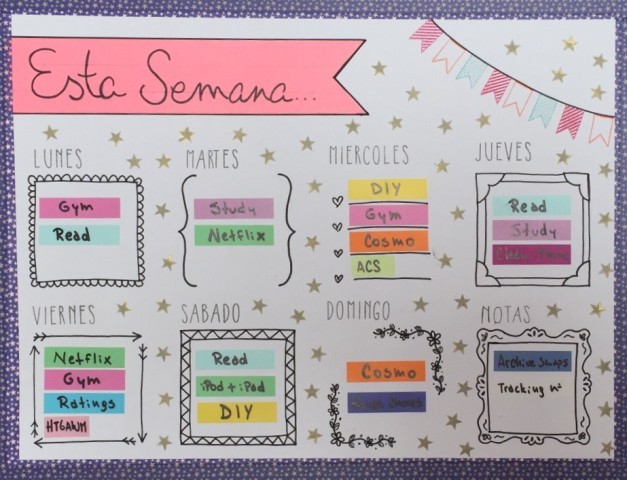 Esta Semana...
LUNES
Gym
Read
MARTES
Study
Netflix
MIERCOLES
DIY
Gym
Cosmo
ACS
JUEVES
Read
Study
VIERNES
Netflix
Gym
Ratings
HTGAWM
SABADO
Read
iPod + iPad
DIY
DOMINGO
Cosmo
NOTAS
Archive Swaps
Tracking nº